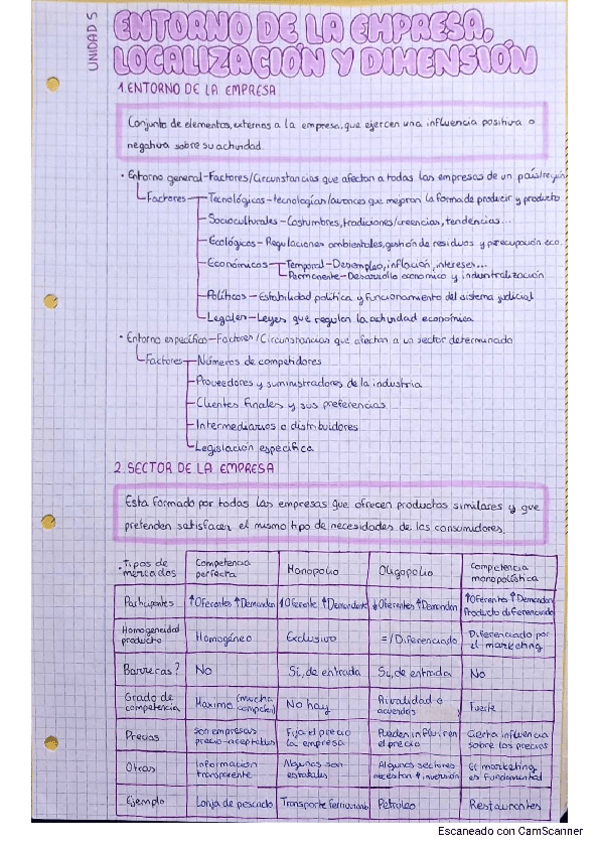 UNIDAD 5
ENTORNO DE LA EMPRESA,
LOCALIZACIÓN Y DIMENSIÓN
1.ENTORNO DE LA EMPRESA
Conjunto de elementos, externos a la empresa, que ejercen una influencia positiva o
negativa sobre su actividad.
· Entorno general-Factores/Circunstancias que afectan a todas las empresas de un país/región
Factores
Tecnológicas-tecnologías/avances que mejoran la forma de producir y producto
Socioculturales-Costumbres, tradiciones/creencias, tendencias...
Ecológicos-Regulaciones ambientales, gestión de residuos y preocupación eco.
Económicos
Temporal-Desempleo, inflación, intereses...
Permanente-Desarrollo económico y industrialización
Políticos-Estabilidad política y funcionamiento del sistema judicial
Legales-Leyes que regulen la actividad económica
· Entorno específico-Factores/Circunstancias que afectan a un sector determinado
Factores
Números de competidores
Proveedores y suministradores de la industria
Clientes finales y sus preferencias
Intermediarios o distribuidores
Legislación específica
2.SECTOR DE LA EMPRESA
Esta formado por todas las empresas que ofrecen productos similares y que
pretenden satisfacer el mismo tipo de necesidades de los consumidores.
· Tipos de mercados | Competencia perfecta | Monopolio | Oligopolio | Competencia monopolística
Participantes | ↑Oferentes ↑Demandan | 1 Oferente ↑Demandante | ↓Oferentes ↑Demandan | ↑Oferentes ↑Demandan Producto diferenciado
Homogeneidad producto | Homogéneo | Exclusivo | =/Diferenciado | Diferenciado por el marketing
Barreras? | No | Si, de entrada | Si, de entrada | No
Grado de competencia | Maximo (mucha | No hay | Rivalidad o acuerdos | Fuerte
Precios | son empresas precio-aceptantes | Fija el precio la empresa | Pueden influir en el precio | Cierta influencia sobre los precios
Otras | Informacion transparente | Algunos son estatales | Algunos sectores necesitan ↑ inversión | El marketing es fundamental
Ejemplo | Lonja de pescado | Transporte ferroviario | Petroleo | Restaurantes
Escaneado con CamScanner